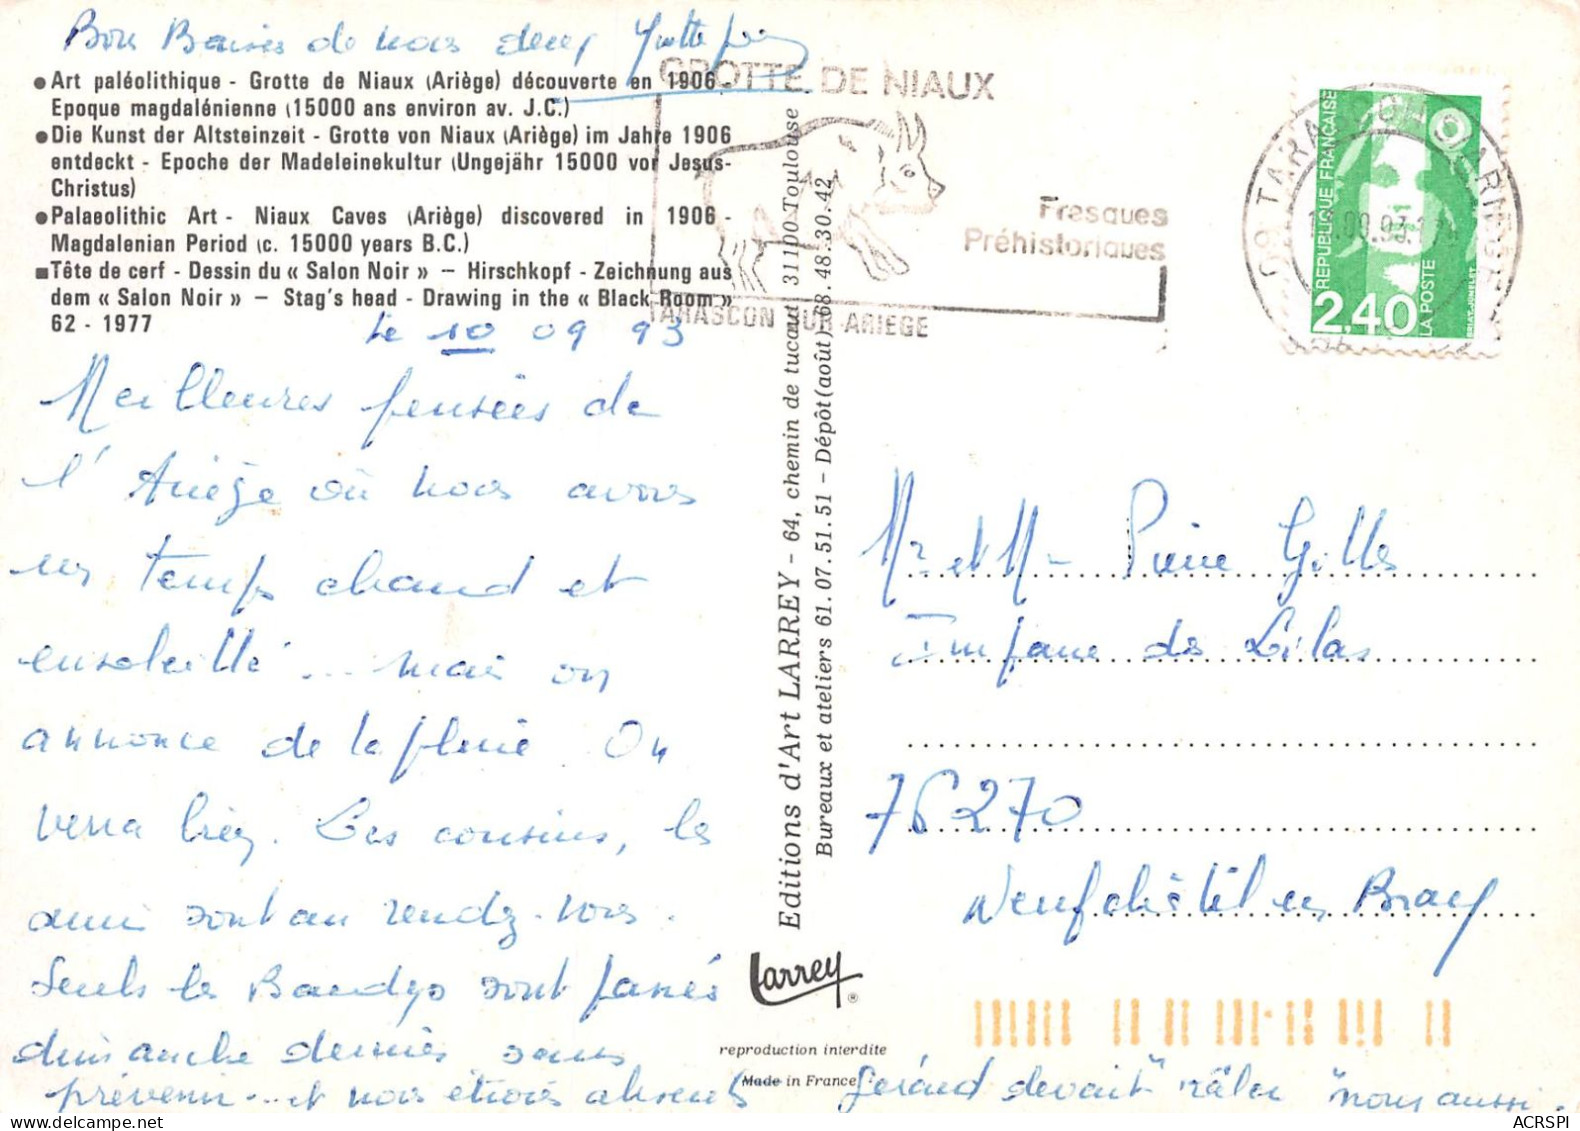 Bons Baisers de nous deux Yvette
• Art paléolithique - Grotte de Niaux (Ariège) découverte en 1906 -
Epoque magdalénienne (15000 ans environ av. J.C.)
• Die Kunst der Altsteinzeit - Grotte von Niaux (Ariège) im Jahre 1906
entdeckt - Epoche der Madeleinekultur (Ungejähr 15000 vor Jesus-
Christus)
• Palaeolithic Art - Niaux Caves (Ariège) discovered in 1906 -
Magdalenian Period (c. 15000 years B.C.)
■ Tête de cerf - Dessin du « Salon Noir » — Hirschkopf - Zeichnung aus
dem « Salon Noir » — Stag's head - Drawing in the « Black Room »
62 - 1977
Le 10 09 93
Meilleures pensées de
l'Ariège où nous avons
un temps chaud et
ensoleillé ... mais on
annonce de la pluie On
verra bien. Les cousins, les
amis sont au rendez-vous.
Seuls les Bandys sont passés
dimanche dernier sans
prévenir... et nous étions absents
Gérard devait "râler" nous aussi.
GROTTE DE NIAUX
Fresques
Préhistoriques
TARASCON SUR ARIEGE
09 TARASCON S/ARIEGE
REPUBLIQUE FRANÇAISE
2,40
LA POSTE
BRIAT-JUMELET
Editions d'Art LARREY - 64, chemin de tucaut 31100 Toulouse
Bureaux et ateliers 61.07.51.51 - Dépôt (août) 68.48.30.42
Mr et Mme Pierre Gilles
Impasse des Lilas
76270
Neufchâtel en Bray
Larrey
®
reproduction interdite
Made in France
ACRSPI